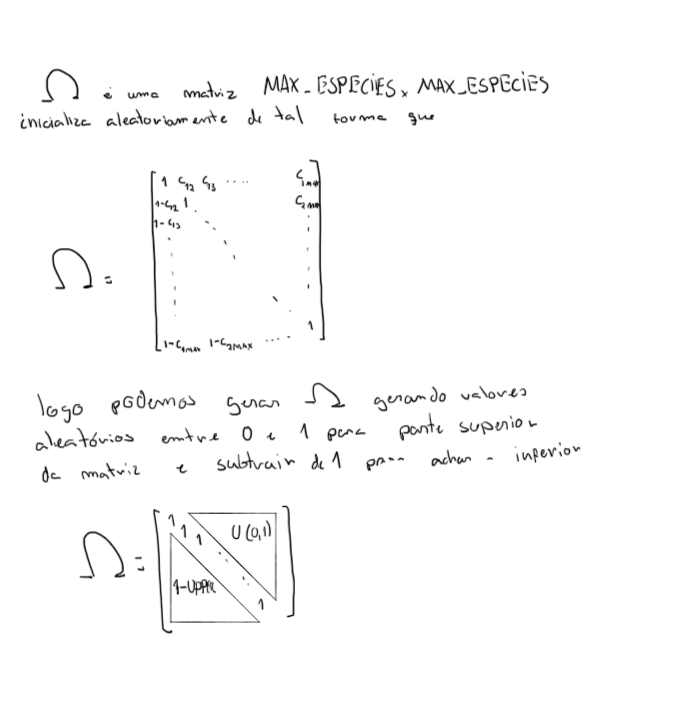 Ω é uma matriz MAX_ESPECIES x MAX_ESPECIES
inicializa aleatoriamente de tal forma que
1 C12 C13 .... C1max
1-C12 1 . C2max
1-C13
Ω =
1
1-C1max 1-C2MAX ....
logo podemos gerar Ω gerando valores
aleatórios entre 0 e 1 para parte superior
da matriz e subtrair de 1 para achar a inferior
1 1 1 U(0,1)
Ω =
1-UPPER 1